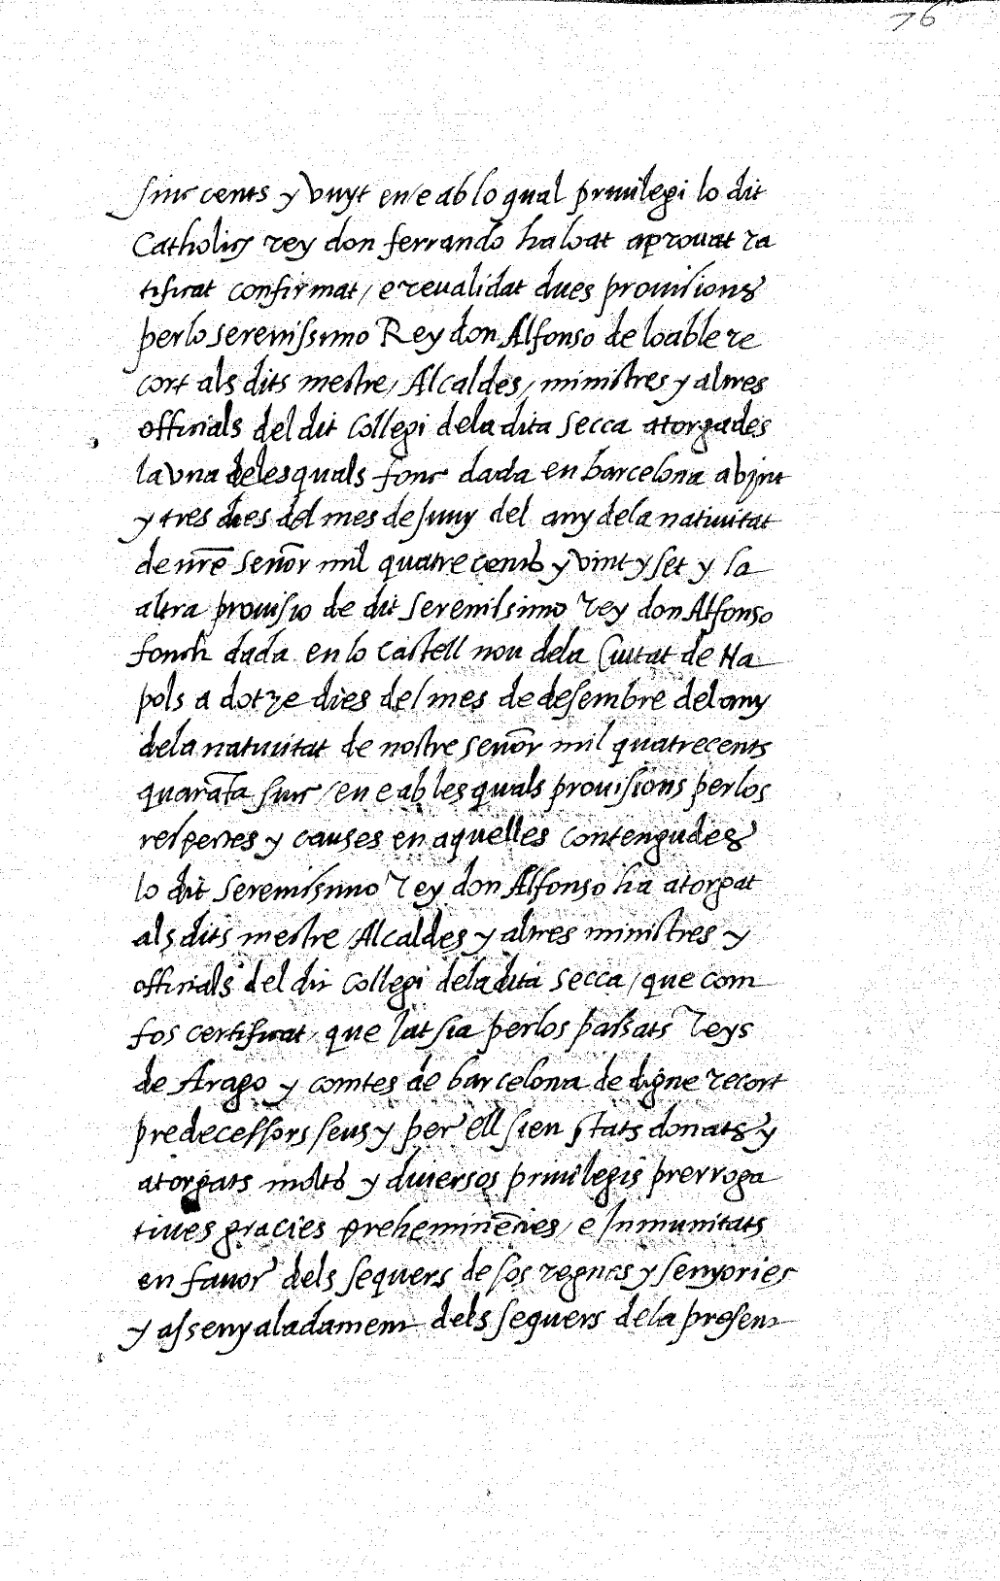 76
sinc cents y vuyt en/e ab lo qual privilegi lo dit
Catholics rey don ferrando ha loat aprovat ra
tificat confirmat / e revalidat dues provisions
per lo serenissimo Rey don Alfonso de loable re
cort als dits mestre / Alcaldes / ministres y altres
officials del dit Collegi dela dita Secca atorgades
la vna deles quals fonc dada en barcelona a vint
y tres dies del mes de Juny del any dela nativitat
de nrē señor mil quatre cents y vint y set y la
altra provisio de dit serenissimo rey don Alfonso
fonch dada en lo castell nou dela Ciutat de Na
pols a dotze dies del mes de desembre del any
dela nativitat de nostre señor mil quatrecents
quarāta sinc / en e ab les quals provisions per los
respectes y causes en aquelles contengudes
lo dit serenissimo rey don Alfonso ha atorgat
als dits mestre / Alcaldes y altres ministres y
officials del dit Collegi dela dita secca / que com
fos certificat / que Jatsia per los passats reys
de Arago y comtes de barcelona de digne recort
predecessors seus y per ell sien stats donats y
atorgats molts y diversos privilegis prerroga
tives gracies preheminēcies / e Inmunitats
en favor dels sequers de sos regnes y senyories
y assenyaladament dels sequers dela present